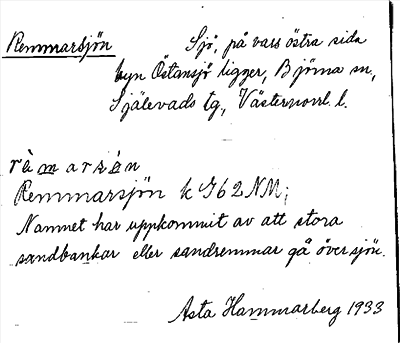 Remmarsjön
Sjö, på vars östra sida
byn Östansjö ligger, Björna sn,
Själevads tg., Västernorrl. l.
rèmarsòn
Remmarsjön k 762 NM;
Namnet har uppkommit av att stora
sandbankar eller sandremmar gå över sjön.
Asta Hammarberg 1933